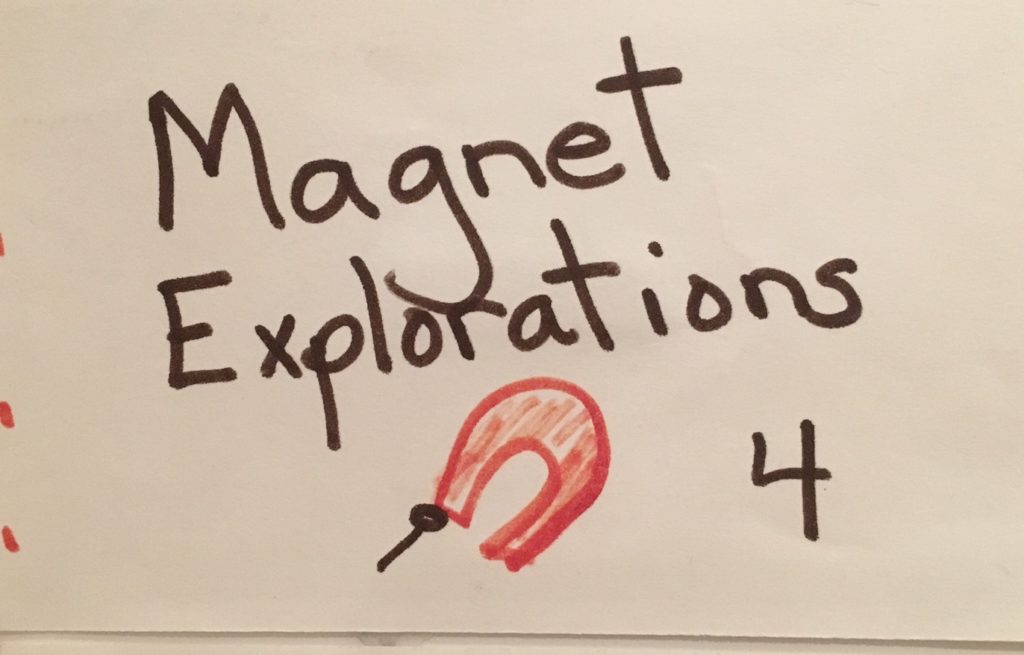 Magnet
Explorations
4